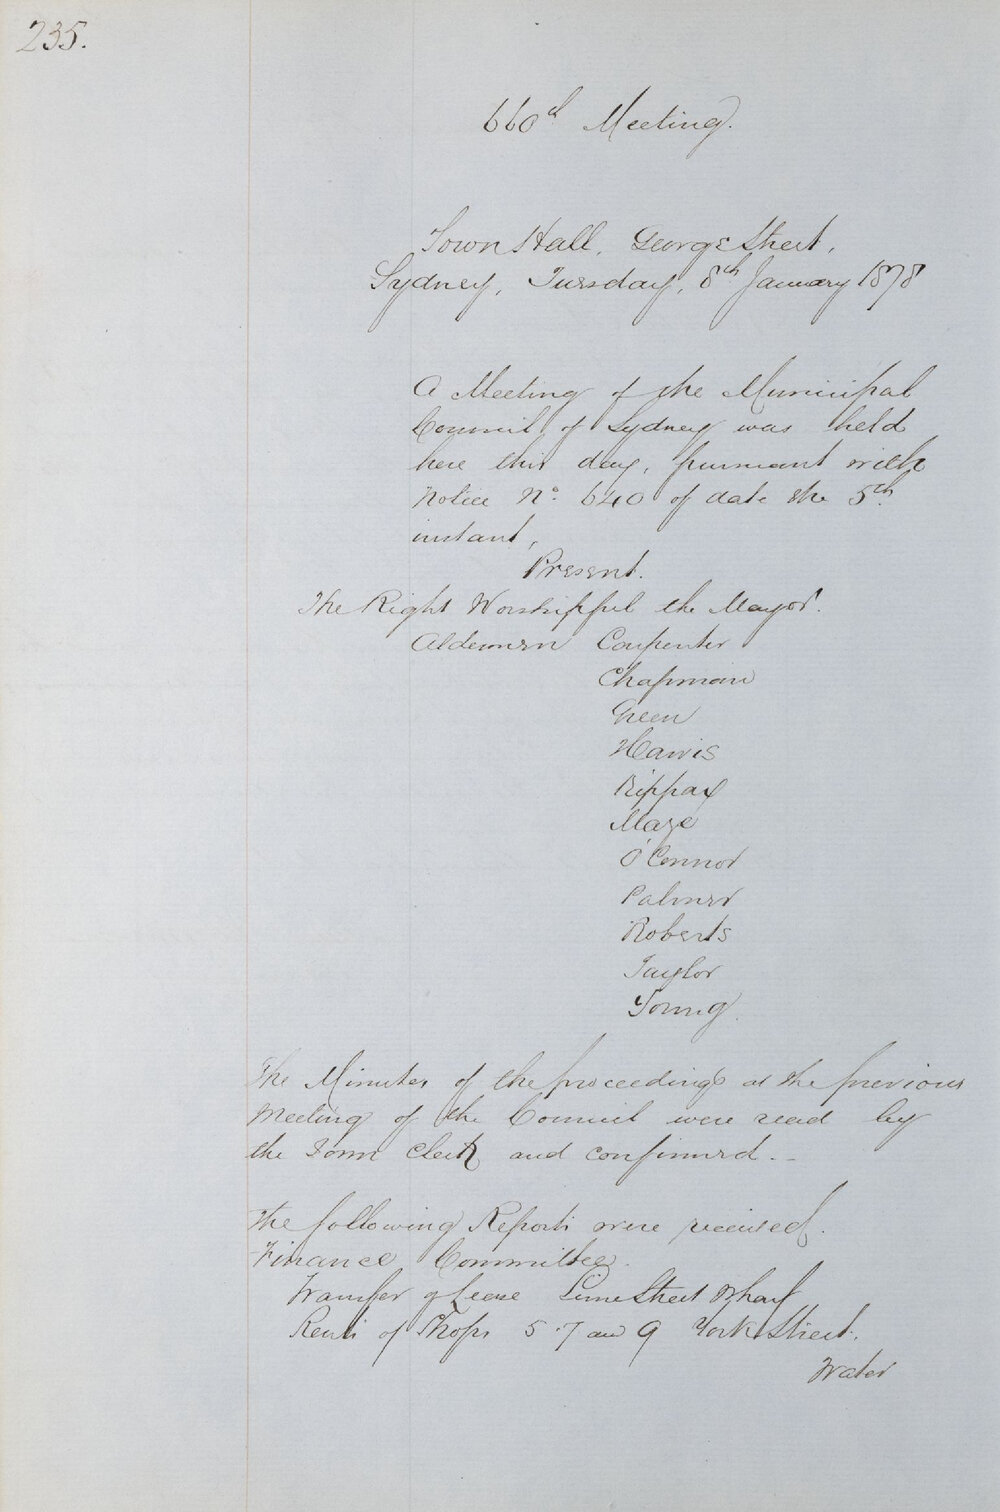 235.
660th Meeting.
Town Hall, George Street,
Sydney, Tuesday, 8th January 1878
A Meeting of the Municipal
Council of Sydney was held
here this day, pursuant with
Notice No. 640 of date the 5th
instant,
Present.
The Right Worshipful the Mayor.
Aldermen Carpenter
Chapman
Green
Harris
Kippax
Maze
O'Connor
Palmer
Roberts
Taylor
Young.
The Minutes of the proceedings at the previous
Meeting of the Council were read by
the Town Clerk and confirmed. -
The following Reports were received.
Finance Committee.
Transfer of Lease Lime Street Wharf
Rents of Shops 5. 7 and 9 York Street.
Water